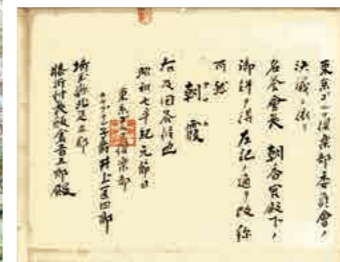 東京ゴルフ倶楽部委員会ノ
決議ニ依リ
名誉會長 朝香宮殿下ノ
御許ヲ得左記ノ通リ改称
可然
朝霞
右及回答候也
昭和七年紀元節日
東京ゴルフ倶楽部
子爵井上匡四郎
埼玉縣北足立郡
膝折村長
殿